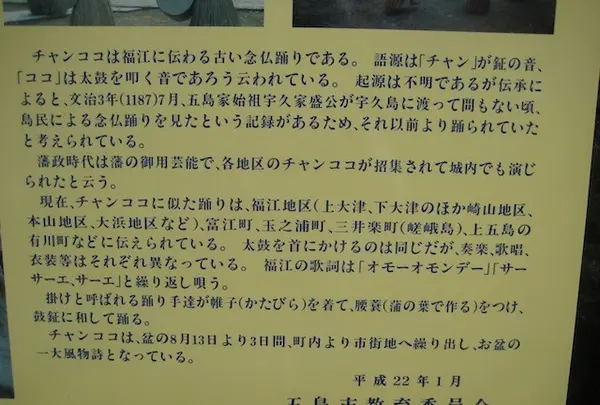 チャンココは福江に伝わる古い念仏踊りである。 語源は「チャン」が鉦の音、
「ココ」は太鼓を叩く音であろう云われている。 起源は不明であるが伝承に
よると、文治3年(1187)7月、五島家始祖宇久家盛公が宇久島に渡って間もない頃、
島民による念仏踊りを見たという記録があるため、それ以前より踊られていた
と考えられている。
藩政時代は藩の御用芸能で、各地区のチャンココが招集されて城内でも演じ
られたと云う。
現在、チャンココに似た踊りは、福江地区(上大津、下大津のほか崎山地区、
本山地区、大浜地区など)、富江町、玉之浦町、三井楽町(嵯峨島)、上五島の
有川町などに伝えられている。 太鼓を首にかけるのは同じだが、奏楽、歌唱、
衣装等はそれぞれ異なっている。 福江の歌詞は「オモーオモンデー」「サー
サーエ、サーエ」と繰り返し唄う。
掛けと呼ばれる踊り手達が帷子(かたびら)を着て、腰蓑(蒲の葉で作る)をつけ、
鼓鉦に和して踊る。
チャンココは、盆の8月13日より3日間、町内より市街地へ繰り出し、お盆の
一大風物詩となっている。
平成22年1月
五島市教育委員会